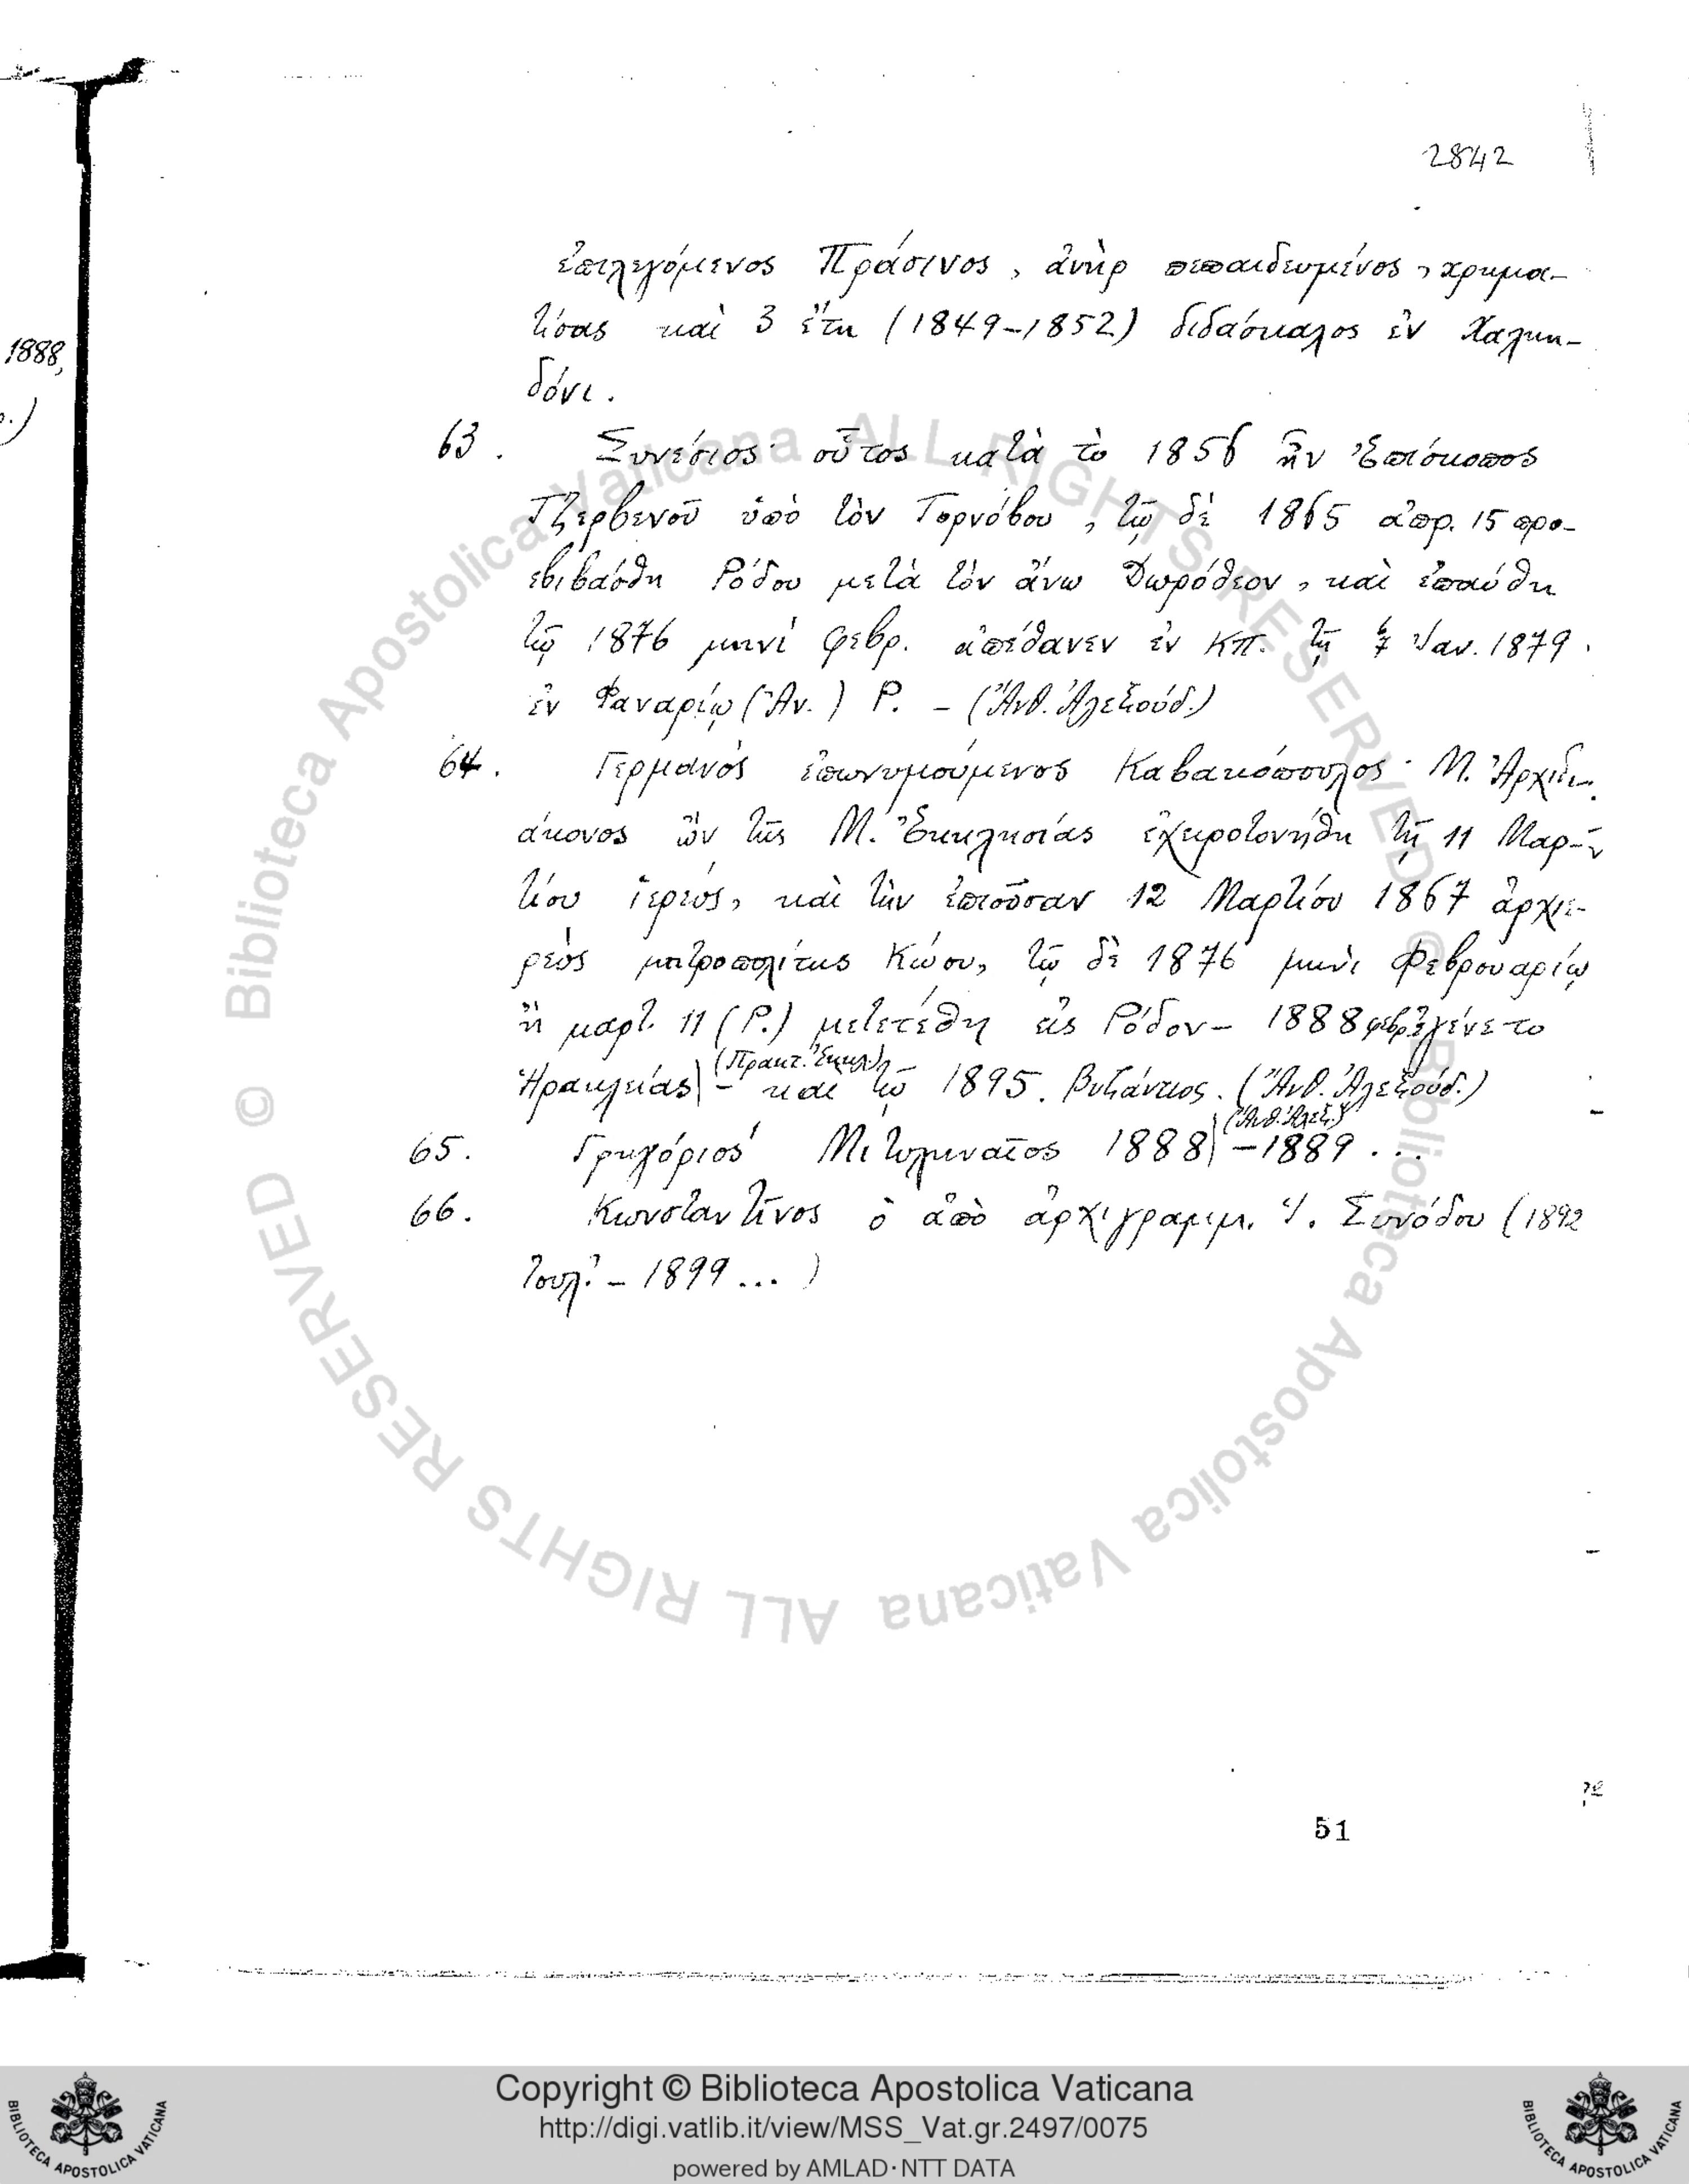 2842
1888,
ἐπιλεγόμενος Πράσινος, ἀνὴρ πεπαιδευμένος, χρημα-
τίσας καὶ 3 ἔτη (1849-1852) διδάσκαλος ἐν Χαλκη-
δόνι.
63. Συνέσιος· οὗτος κατὰ τὸ 1856 ἦν Ἐπίσκοπος
Τζερβενοῦ ὑπὸ τὸν Τορνόβου, τῷ δὲ 1865 ἀπρ. 15 προ-
εβιβάσθη Ῥόδου μετὰ τὸν ἄνω Δωρόθεον, καὶ ἐπαύθη
τῷ 1876 μηνὶ φεβρ. ἀπέθανεν ἐν Κπ. τῇ Ἰαν. 1879.
ἐν Φαναρίῳ (Ἀν.) Ρ. - (Ἄνθ. Ἀλεξούδ.)
64. Γερμανὸς ἐπωνυμούμενος Καβακόπουλος· Μ. Ἀρχιδι-
άκονος ὢν τῆς Μ. Ἐκκλησίας ἐχειροτονήθη τῇ 11 Μαρ-
τίου ἱερεὺς, καὶ τὴν ἐπιοῦσαν 12 Μαρτίου 1867 ἀρχιε-
ρεὺς μητροπολίτης Κώου, τῷ δὲ 1876 μηνὶ Φεβρουαρίῳ
ἢ μαρτ. 11 (Ρ.) μετετέθη εἰς Ῥόδον - 1888 φεβρ. ἐγένετο
(Πρακτ. Ἐκκλ.)
Ἡρακλείας - καὶ τῷ 1895. Βυζάντιος. (Ἄνθ. Ἀλεξούδ.)
(Ἄνθ. Ἀλεξ.)
65. Γρηγόριος Μιτυληναῖος 1888 -1889 ...
66. Κωνσταντῖνος ὁ ἀπὸ ἀρχιγραμμ. Ἱ. Συνόδου (1892
Ἰουλ. - 1899 ... )
51
© Biblioteca Apostolica Vaticana ALL RIGHTS RESERVED
© Biblioteca Apostolica Vaticana ALL RIGHTS RESERVED
Copyright © Biblioteca Apostolica Vaticana
http://digi.vatlib.it/view/MSS_Vat.gr.2497/0075
powered by AMLAD·NTT DATA
BIBLIOTECA APOSTOLICA VATICANA
BIBLIOTECA APOSTOLICA VATICANA